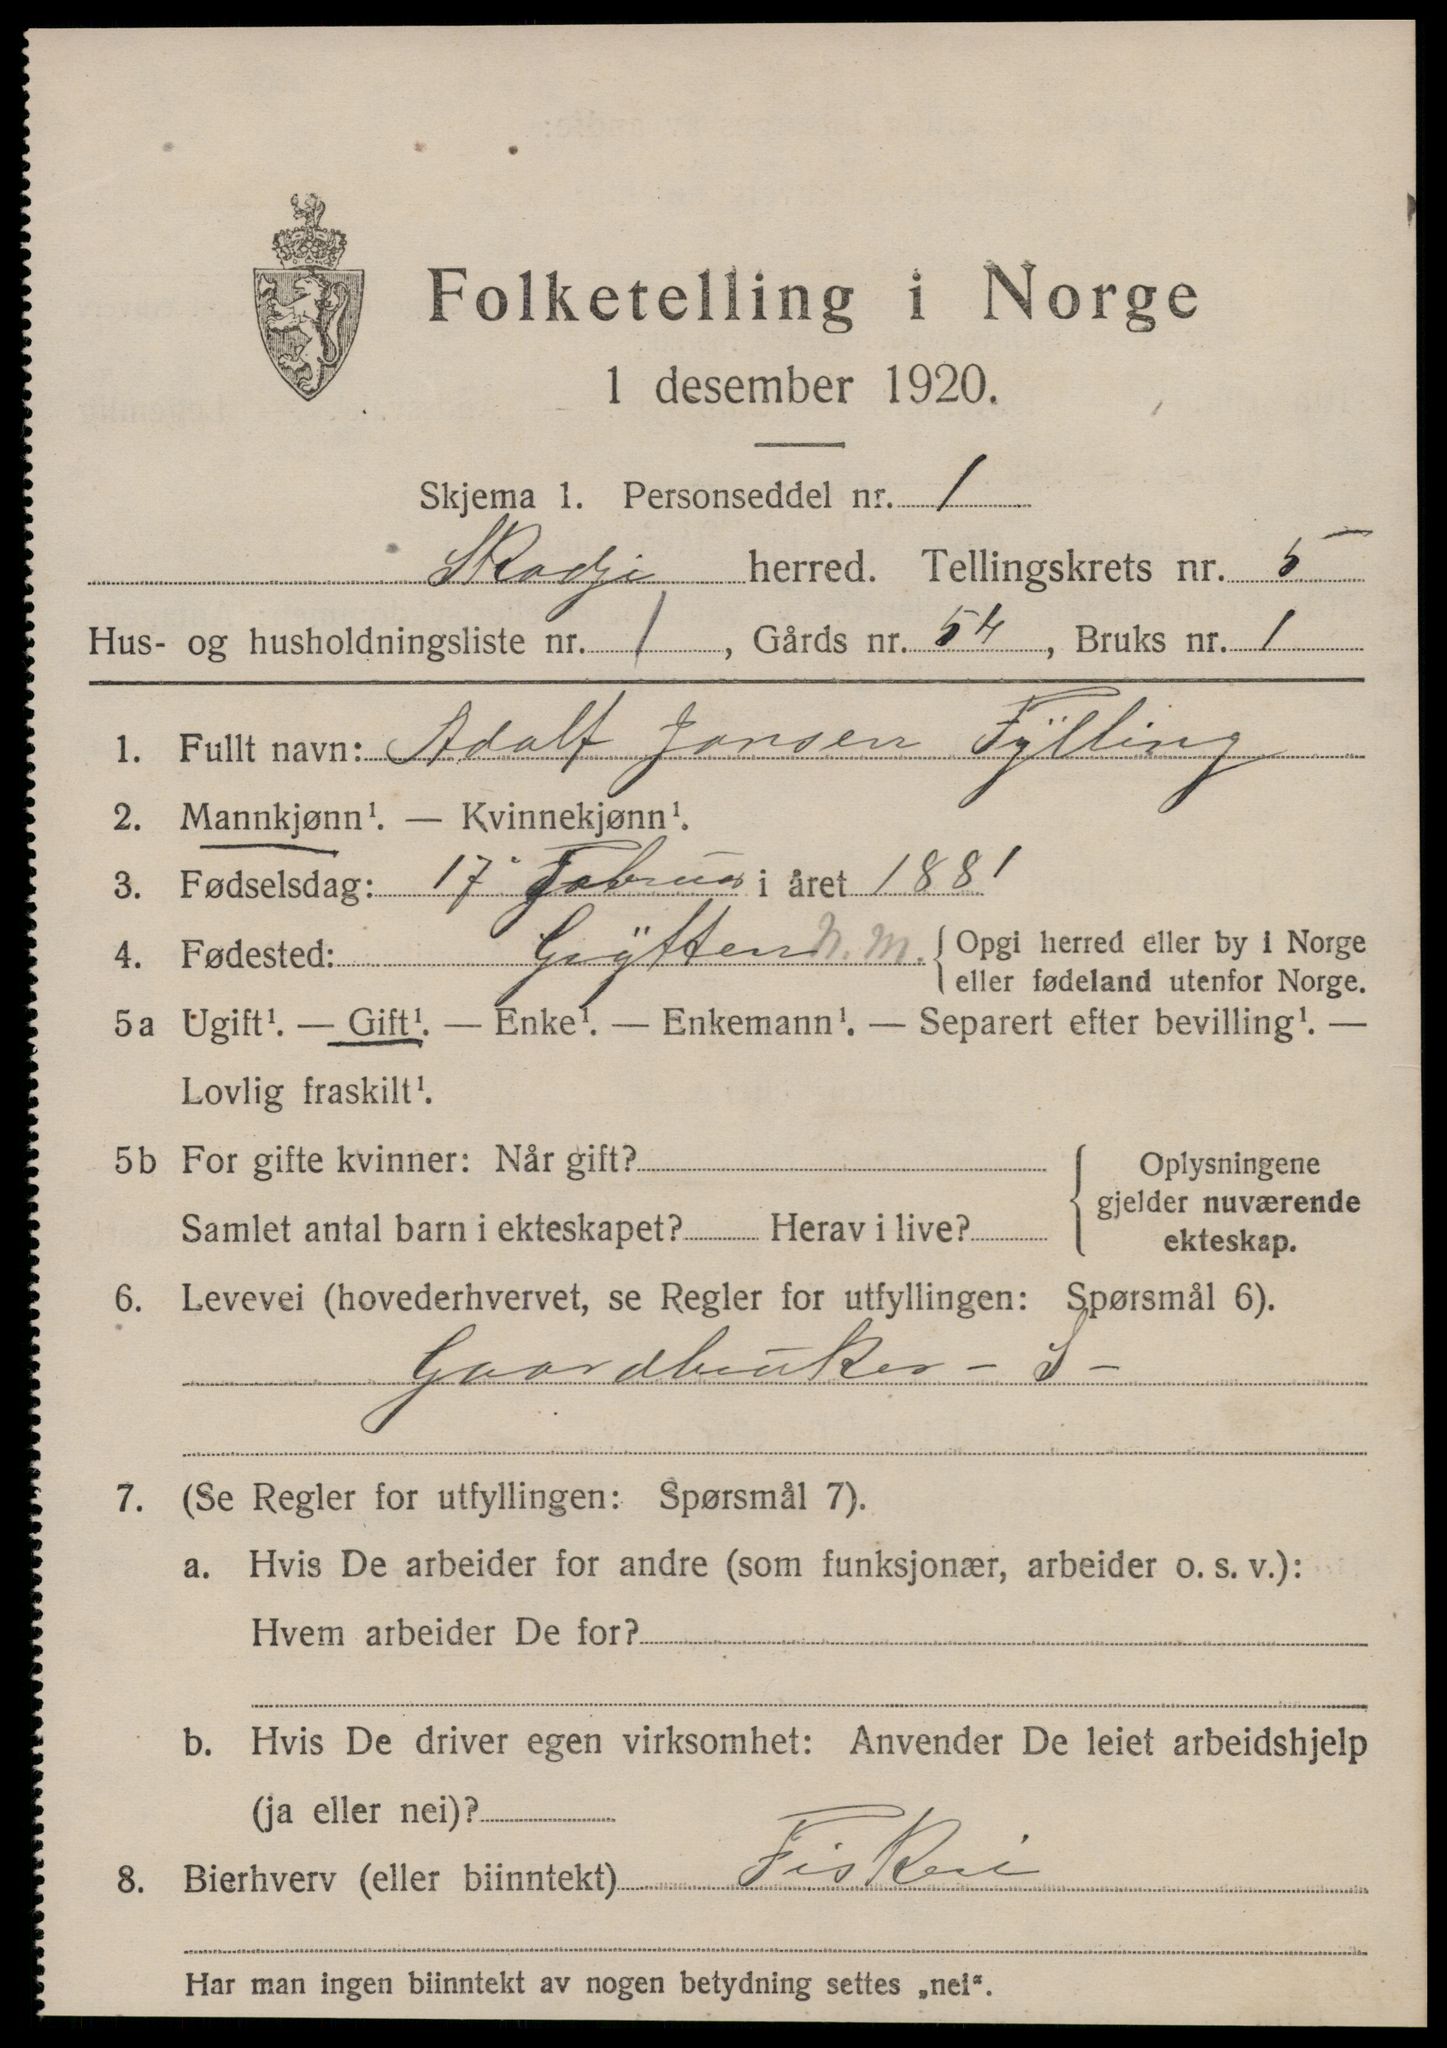 Folketelling i Norge
1 desember 1920.
Skjema 1. Personseddel nr. 1
Skodje herred. Tellingskrets nr. 5
Hus- og husholdningsliste nr. 1, Gårds nr. 54, Bruks nr. 1
1. Fullt navn: Adolf Jonsen Fylling
2. Mannkjønn¹. — Kvinnekjønn¹.
3. Fødselsdag: 17 Februar i året 1881
4. Fødested: Grytten N.M. { Opgi herred eller by i Norge
eller fødeland utenfor Norge.
5a Ugift¹. — Gift¹. — Enke¹. — Enkemann¹. — Separert efter bevilling¹. —
Lovlig fraskilt¹.
5b For gifte kvinner: Når gift?
Samlet antal barn i ekteskapet? Herav i live?
{ Oplysningene
gjelder nuværende
ekteskap.
6. Levevei (hovederhvervet, se Regler for utfyllingen: Spørsmål 6).
Gaardbruker - S -
7. (Se Regler for utfyllingen: Spørsmål 7).
a. Hvis De arbeider for andre (som funksjonær, arbeider o. s. v.):
Hvem arbeider De for?
b. Hvis De driver egen virksomhet: Anvender De leiet arbeidshjelp
(ja eller nei)?
8. Bierhverv (eller biinntekt) Fiskeri
Har man ingen biinntekt av nogen betydning settes „nei“.